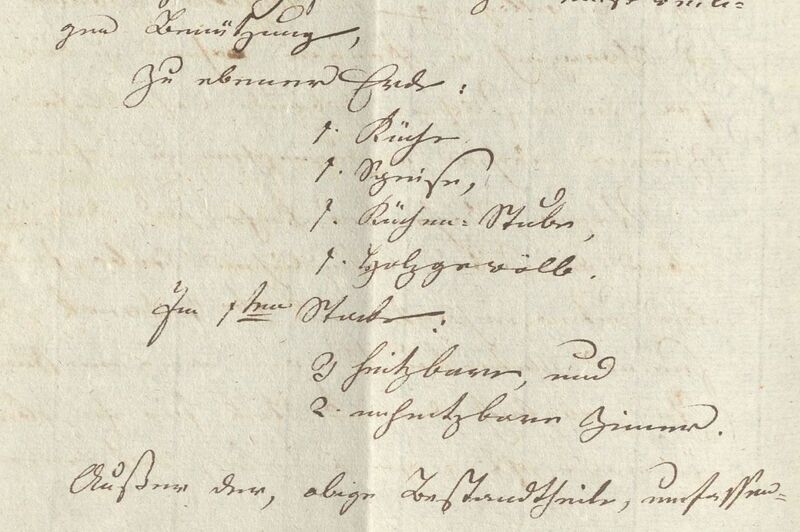 gen Benützung,
Zu ebener Erde:
1. Küche
1. Speise,
1. Küchen-Stube,
1. Holzgewölb.
Im 1ten Stocke:
3 heitzbare, und
2. unheitzbare Zimer.
Außer der, obige Bestandtheile, umfassen=